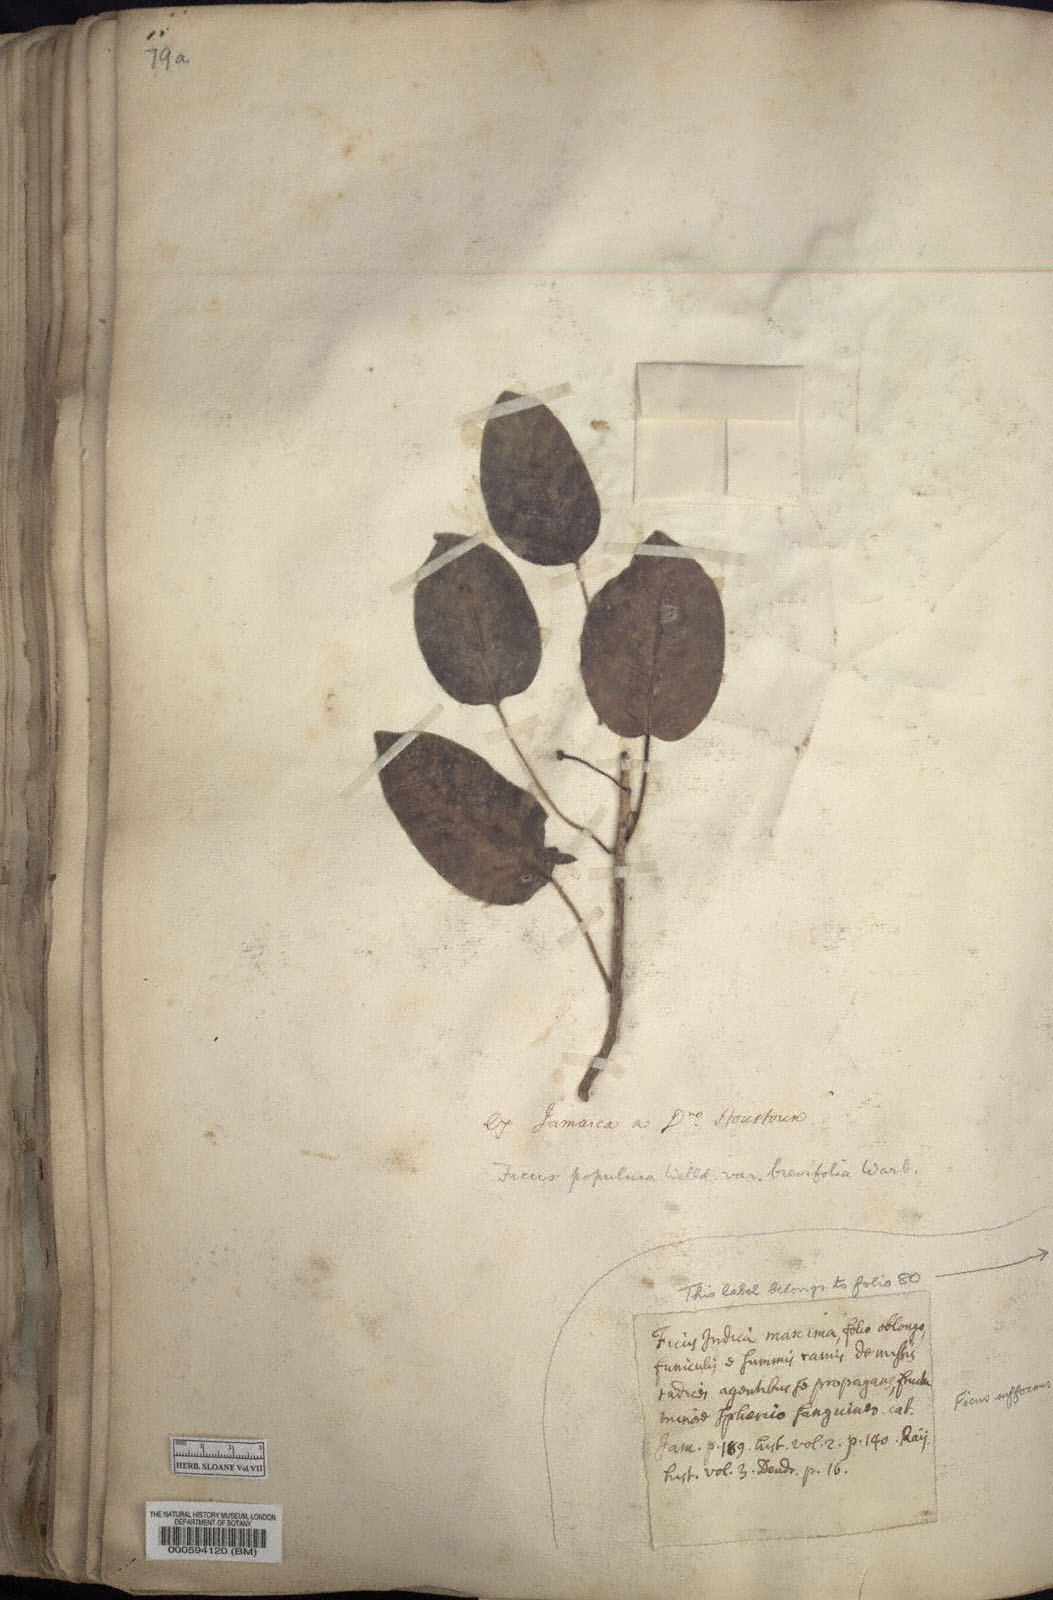 79a
ex Jamaica a Dno. Houstoun.
Ficus populnea Willd. var. brevifolia Warb.
This label belongs to folio 80
Ficus Indica maxima, folio oblongo,
funiculis e summis ramis demissis
radices agentibus se propagans, fructu
minore sphærico sanguineo. cat.
Jam. p. 189. hist. vol. 2. p. 140. Raij.
hist. vol. 3. Dendr. p. 16.
Ficus suffocans
HERB. SLOANE Vol VII
THE NATURAL HISTORY MUSEUM, LONDON
DEPARTMENT OF BOTANY
000594120 (BM)